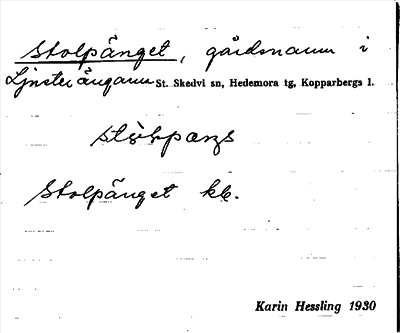 Stolpänget, gårdsnamn i
Ljusterängarna St. Skedvi sn, Hedemora tg, Kopparbergs l.
Stolpänget kb.
Karin Hessling 1930